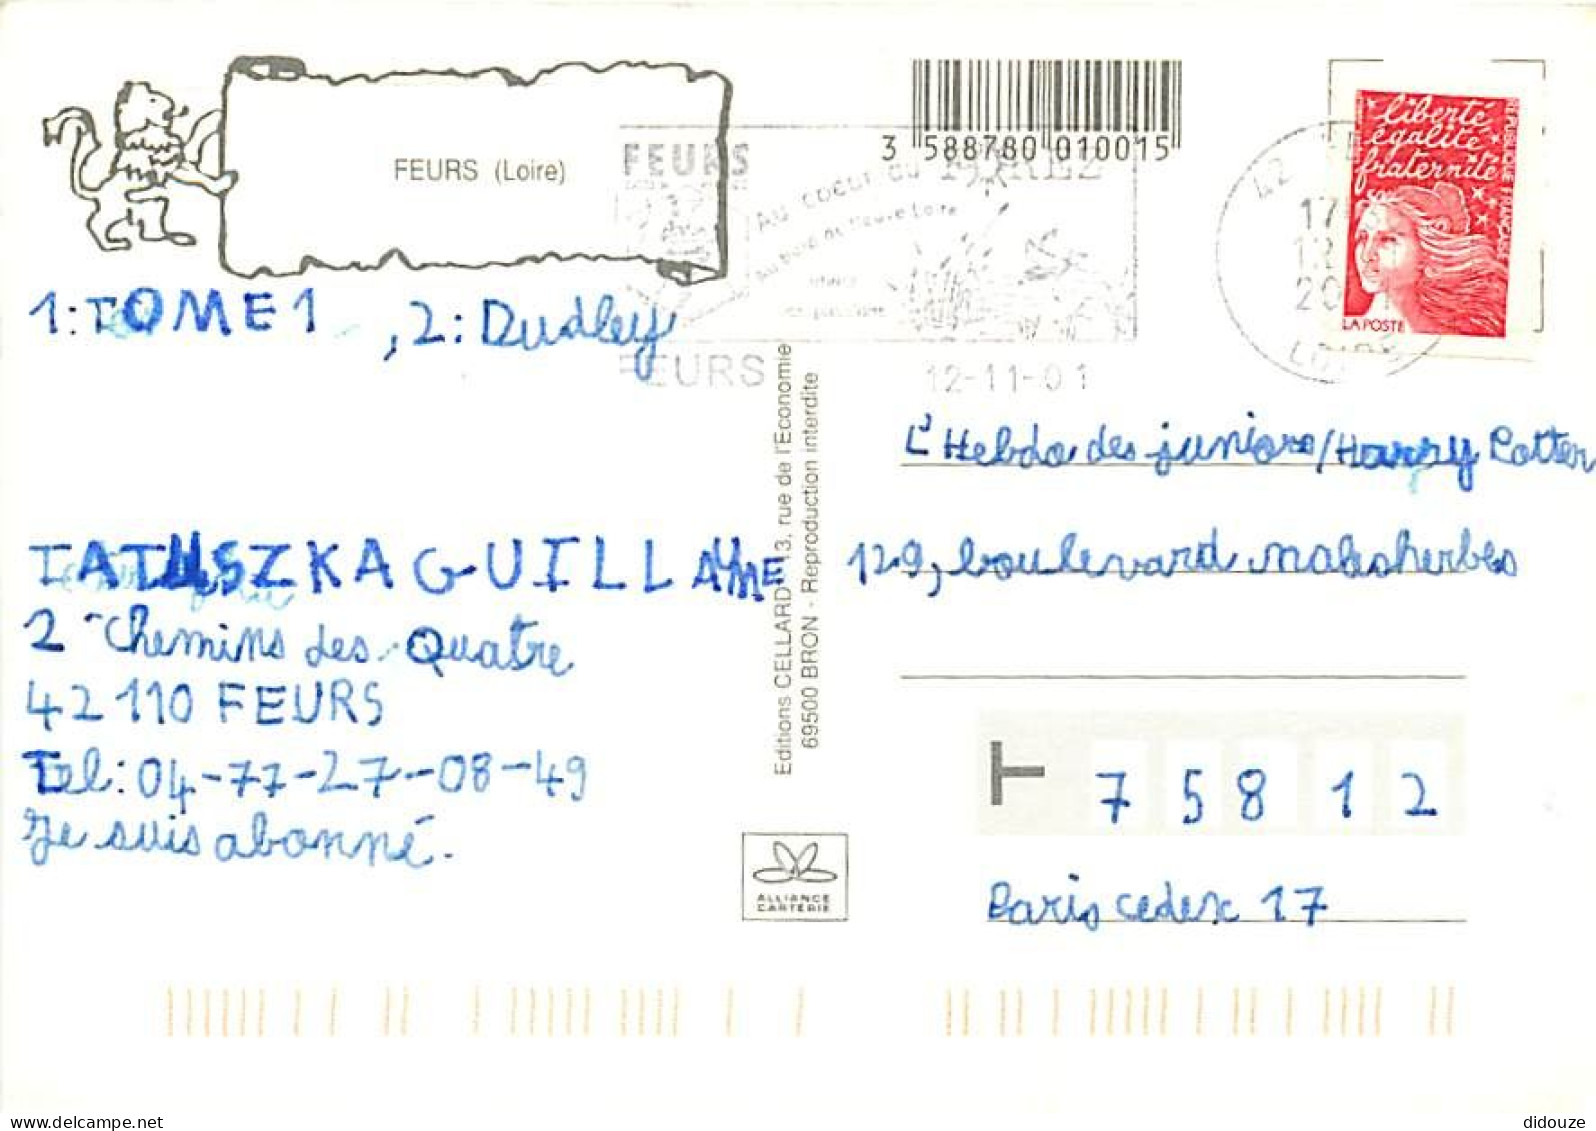 FEURS (Loire)
3 588780 010015
FEURS
Au coeur du FOREZ
au bord du fleuve Loire
FEURS
12-11-01
42
17
20
LOIRE
liberté
égalité
fraternité
REPUBLIQUE FRANÇAISE
LA POSTE
1: TOME 1 , 2: Dudley
TATUSZKA GUILLAUME
2 Chemins des Quatre
42110 FEURS
Tel: 04-77-27-08-49
Je suis abonné.
Editions CELLARD 13, rue de l'Economie
69500 BRON - Reproduction interdite
L'Hebdo des juniors/Harry Potter
129, boulevard malesherbes
75812
Paris cedex 17
ALLIANCE
CARTERIE
didouze